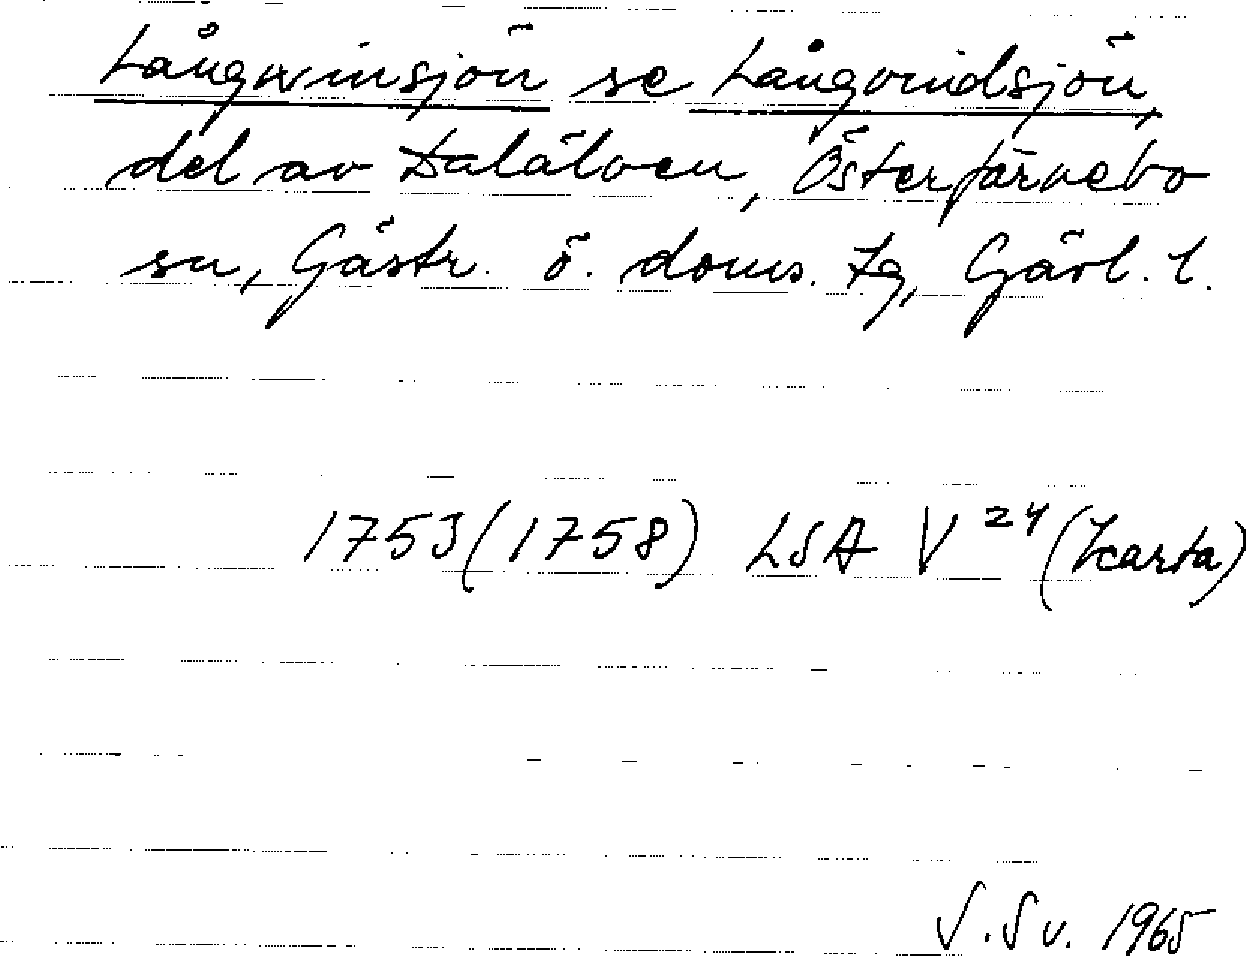 Långwinsjön se Långvindsjön,
del av Dalälven, Österfärnebo
sn, Gästr. ö. doms. tg, Gävl. l.
1753(1758) LSA V 24 (karta)
S. Sv. 1965